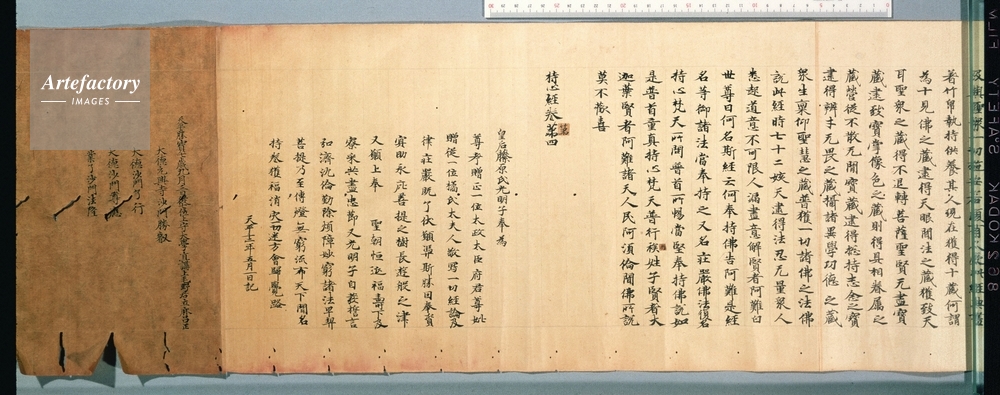 著竹帛執持供養其人現在獲得十藏何謂
為十見佛之藏逮得天眼聞法之藏獲致天
耳聖衆之藏得不退轉菩薩聖賢无盡寶
藏逮致寶掌像色之藏則得具相眷屬之
藏營從不散无聞寶藏逮得總持志念之寶
逮得辨才无畏之藏攝諸異學功德之藏
衆生稟仰聖慧之藏普獲一切諸佛之法佛
說此經時七十二姟天逮得法忍无量衆人
悉起道意不可限人漏盡意解賢者阿難白
世尊曰何名斯經云何奉持佛告阿難是經
名等御諸法當奉持之又名莊嚴佛法復名
持心梵天所問普首所暢當堅奉持佛說如
是普首童真持心梵天普行族姓子賢者大
迦葉賢者阿難諸天人民阿須倫聞佛所說
莫不歡喜
持心經卷第四
皇后藤原氏光明子奉為
尊考贈正一位太政太臣府君尊妣
贈從一位橘氏太夫人敬寫一切經論及
律莊嚴既了伏願憑斯勝因奉資
冥助永庇菩提之樹長遊般若之津
又願上奉 聖朝恒延福壽下及
寮采共盡忠節又光明子自發誓言
弘濟沈倫勤除煩障妙窮諸法早契
菩提乃至傳燈無窮流布天下聞名
持卷獲福消灾一切迷方會歸覺路
天平十二年五月一日記
大德沙門了行
Artefactory
IMAGES
KODAK